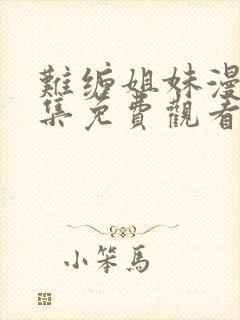 難缠姐妹漫
集免費觀看
小笨馬